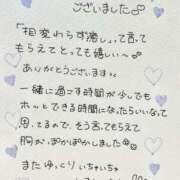 ございました
「相変わらず癒し」って言って
もらえてとっても嬉しい〜
ありがとうございます
一緒に過ごす時間が少しでも
ホッとできる時間になったらいいなって
思ってるので、そう言ってもらえて
胸がぽかぽかしました
またゆっくりいちゃいちゃ